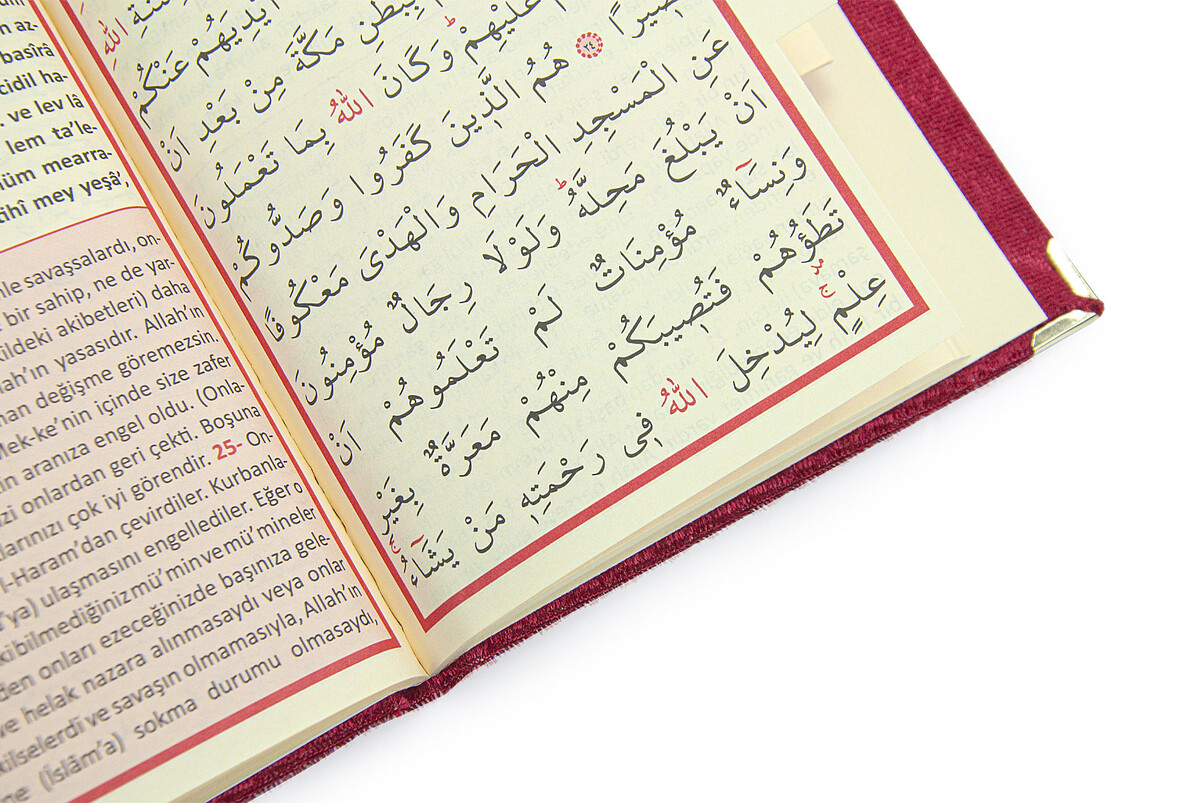 az-
basîrâ
cidil ha-
. ve lev lâ
lem ta'le-
mearra-
tihî mey yeşâ',
savaşsalardı, on-
bir sahip, ne de yar-
akibetleri) daha
yasasıdır. Allah'ın
değişme göremezsin.
Mek-ke'nin içinde size zafer
aranıza engel oldu. (Onla-
onlardan geri çekti. Boşuna
çok iyi görendir. 25- On-
l-Haram'dan çevirdiler. Kurbanla-
ulaşmasını engellediler. Eğer o
ki bilmediğiniz mü'min ve mü'mineler
den onları ezeceğinizde başınıza gele-
ve helak nazara alınmasaydı veya onlar
ve savaşın olmamasıyla, Allah'ın
(İslâm'a) sokma durumu olmasaydı,
اللّٰهِ
اَيْدِيَهُمْ عَنْكُمْ
بِبَطْنِ مَكَّةَ مِنْ بَعْدِ اَنْ
عَلَيْهِمْ وَكَانَ اللّٰهُ بِمَا تَعْمَلُونَ
بَصِيرًا ٢٤ هُمُ الَّذِينَ كَفَرُوا وَصَدُّوكُمْ
عَنِ الْمَسْجِدِ الْحَرَامِ وَالْهَدْىَ مَعْكُوفًا
اَنْ يَبْلُغَ مَحِلَّهُ وَلَوْلَا رِجَالٌ مُؤْمِنُونَ
وَنِسَآءٌ مُؤْمِنَاتٌ لَمْ تَعْلَمُوهُمْ اَنْ
تَطَؤُهُمْ فَتُصِيبَكُمْ مِنْهُمْ مَعَرَّةٌ بِغَيْرِ
عِلْمٍ لِيُدْخِلَ اللّٰهُ فِى رَحْمَتِهِ مَنْ يَشَآءُ